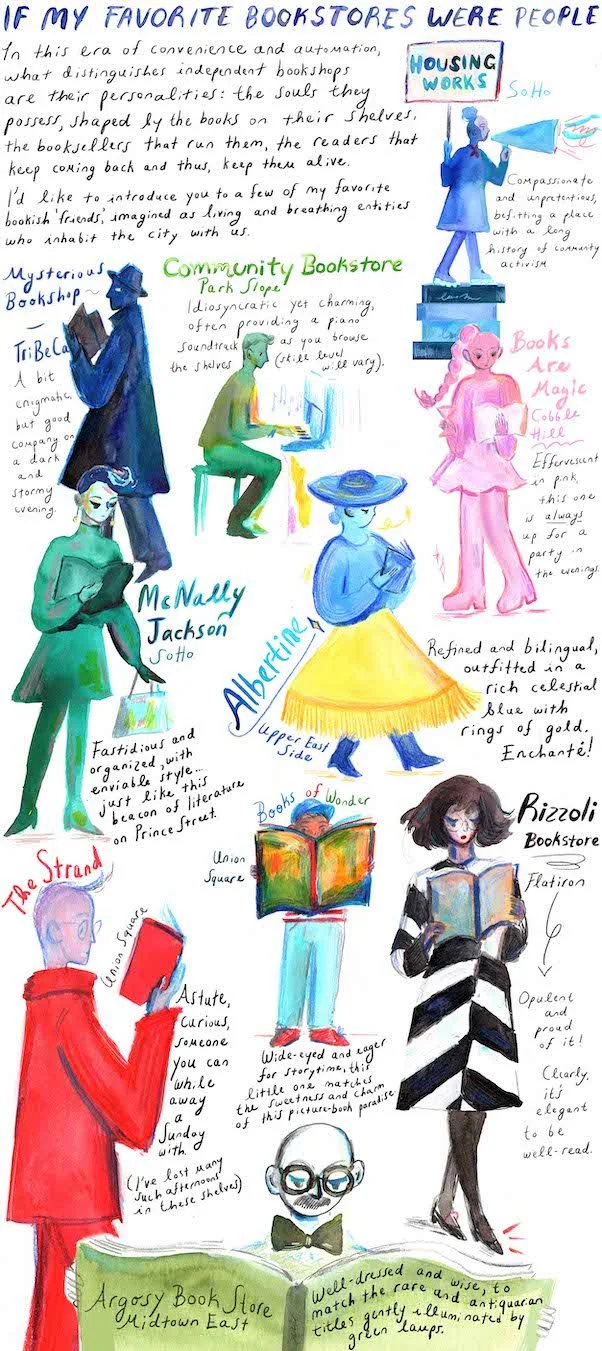 IF MY FAVORITE BOOKSTORES WERE PEOPLE
In this era of convenience and automation,
what distinguishes independent bookshops
are their personalities: the souls they
possess, shaped by the books on their shelves,
the booksellers that run them, the readers that
keep coming back and thus, keep them alive.
I'd like to introduce you to a few of my favorite
bookish 'friends', imagined as living and breathing entities
who inhabit the city with us.
HOUSING
WORKS
SoHo
Compassionate
and unpretentious,
befitting a place
with a long
history of community
activism
Mysterious
Bookshop
TriBeCa
A bit
enigmatic,
but good
company on
a dark
and
stormy
evening.
Community Bookstore
Park Slope
Idiosyncratic yet charming,
often providing a piano
soundtrack as you browse
the shelves (skill level
will vary).
Books
Are
Magic
Cobble
Hill
Effervescent
in pink,
this one
is always
up for a
party in
the evenings.
McNally
Jackson
SoHo
Fastidious and
organized, with
enviable style...
just like this
beacon of literature
on Prince Street.
Albertine
Upper East
Side
Refined and bilingual,
outfitted in a
rich celestial
blue with
rings of gold.
Enchanté!
Books of Wonder
Union
Square
Wide-eyed and eager
for storytime, this
little one matches
the sweetness and charm
of this picture-book paradise
Rizzoli
Bookstore
Flatiron
Opulent
and
proud
of it!
Clearly,
it's
elegant
to be
well-read.
The Strand
Union Square
Astute,
curious,
someone
you can
while
away
a
Sunday
with
(I've lost many
such afternoons
in these shelves)
Argosy Book Store
Midtown East
Well-dressed and wise, to
match the rare and antiquarian
titles gently illuminated by
green lamps.